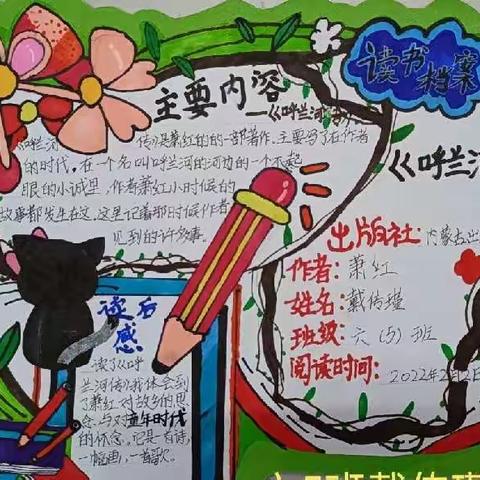 读书
档案
主要内容
—《呼兰河传》
《呼兰河
传》是萧红的的一部著作。主要写了在作者
的时代，在一个名叫呼兰河的河边的一个不起
眼的小城里，作者萧红小时候的
故事都发生在这，这里记着那时候作者
见到的许多事。
《呼兰河
出版社：内蒙古出
作者：萧红
姓名：戴传瑾
班级：六（5）班
阅读时间：2022年2月2日
读后
感
读了《呼
兰河传》我体会到
了萧红对故乡的思
念，与对童年时代
的怀念。它是一首诗，
一幅画，一首歌。